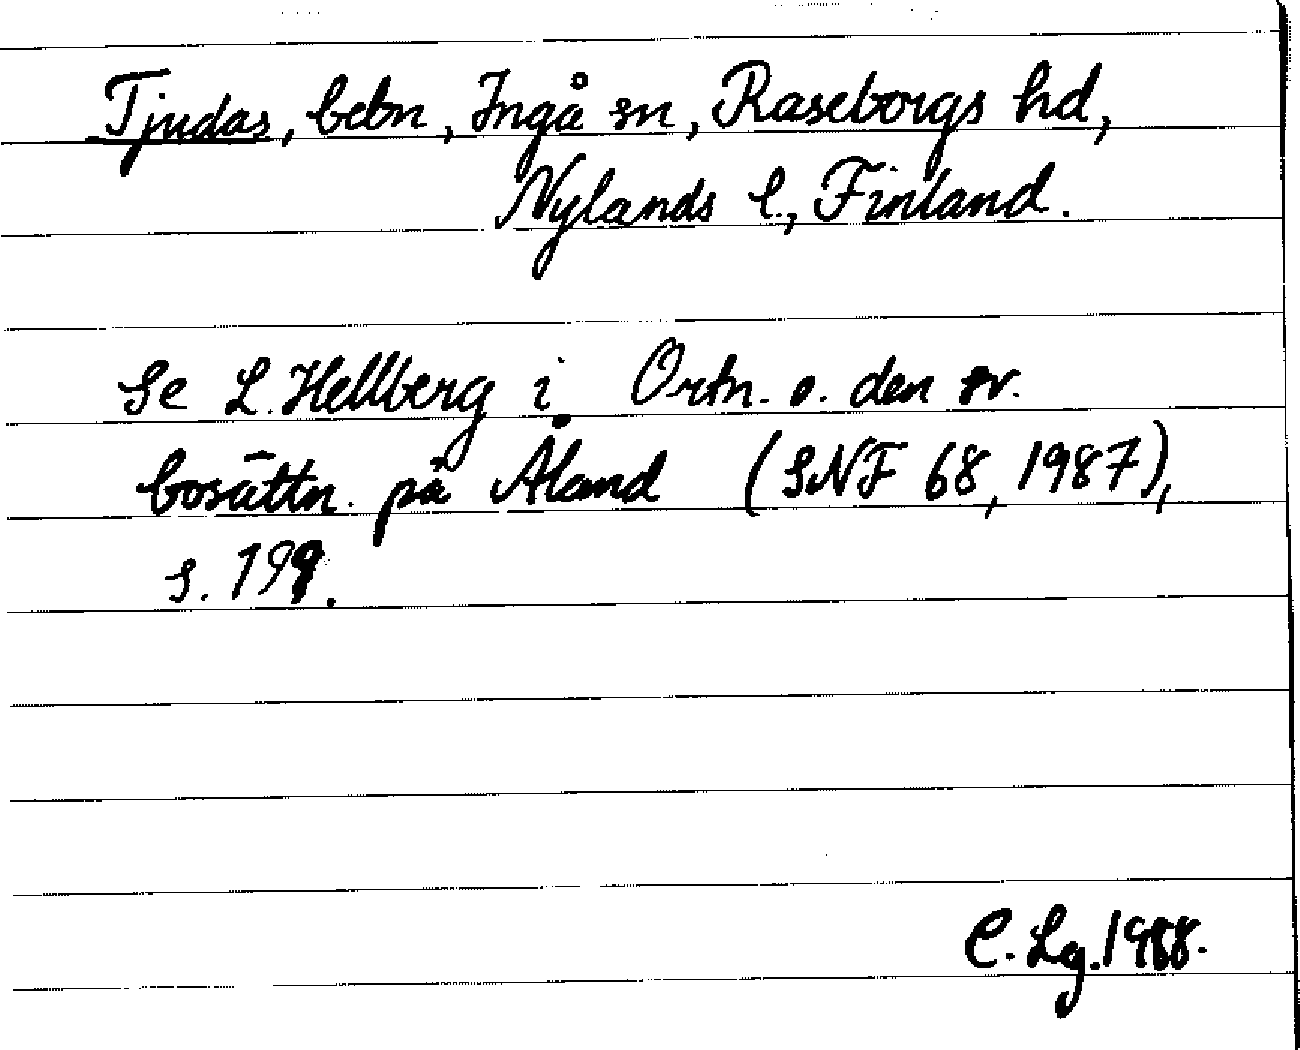 Tjudas, bebn, Ingå sn, Raseborgs hd,
Nylands l., Finland.
Se L. Hellberg i Ortn. o. den sv.
bosättn. på Åland (SNF 68, 1987),
s. 199.
C. Lg. 1988.